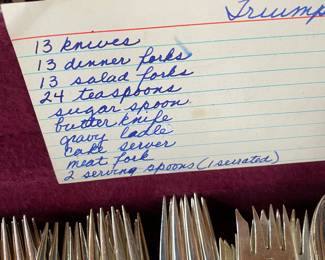 Trium
13 knives
13 dinner forks
13 salad forks
24 teaspoons
sugar spoon
butter knife
gravy ladle
cake server
meat fork
2 serving spoons (1 serrated)